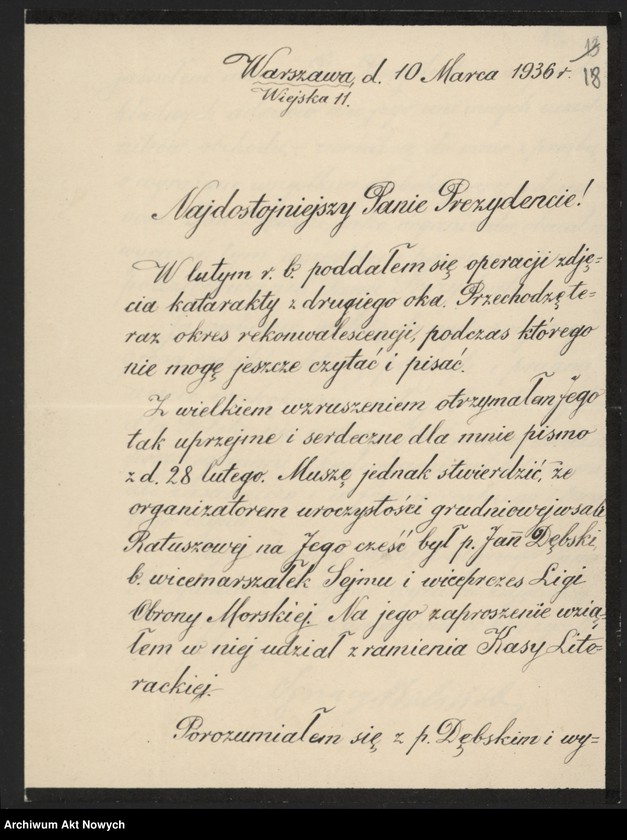 13
18
Warszawa, d. 10 Marca 1936 r.
Wiejska 11.
Najdostojniejszy Panie Prezydencie!
W lutym r. b. poddałem się operacji zdję=
cia katarakty z drugiego oka. Przechodzę te=
raz okres rekonwalescencji, podczas którego
nie mogę jeszcze czytać i pisać.
Z wielkiem wzruszeniem otrzymałem Jego
tak uprzejme i serdeczne dla mnie pismo
z d. 28 lutego. Muszę jednak stwierdzić, że
organizatorem uroczystości grudniowej w sali
Ratuszowej na Jego cześć był p. Jan Dębski,
b. wicemarszałek Sejmu i wiceprezes Ligi
Obrony Morskiej. Na jego zaproszenie wzią=
łem w niej udział z ramienia Kasy Lite=
rackiej.
Porozumiałem się z p. Dębskim i wy=
Archiwum Akt Nowych